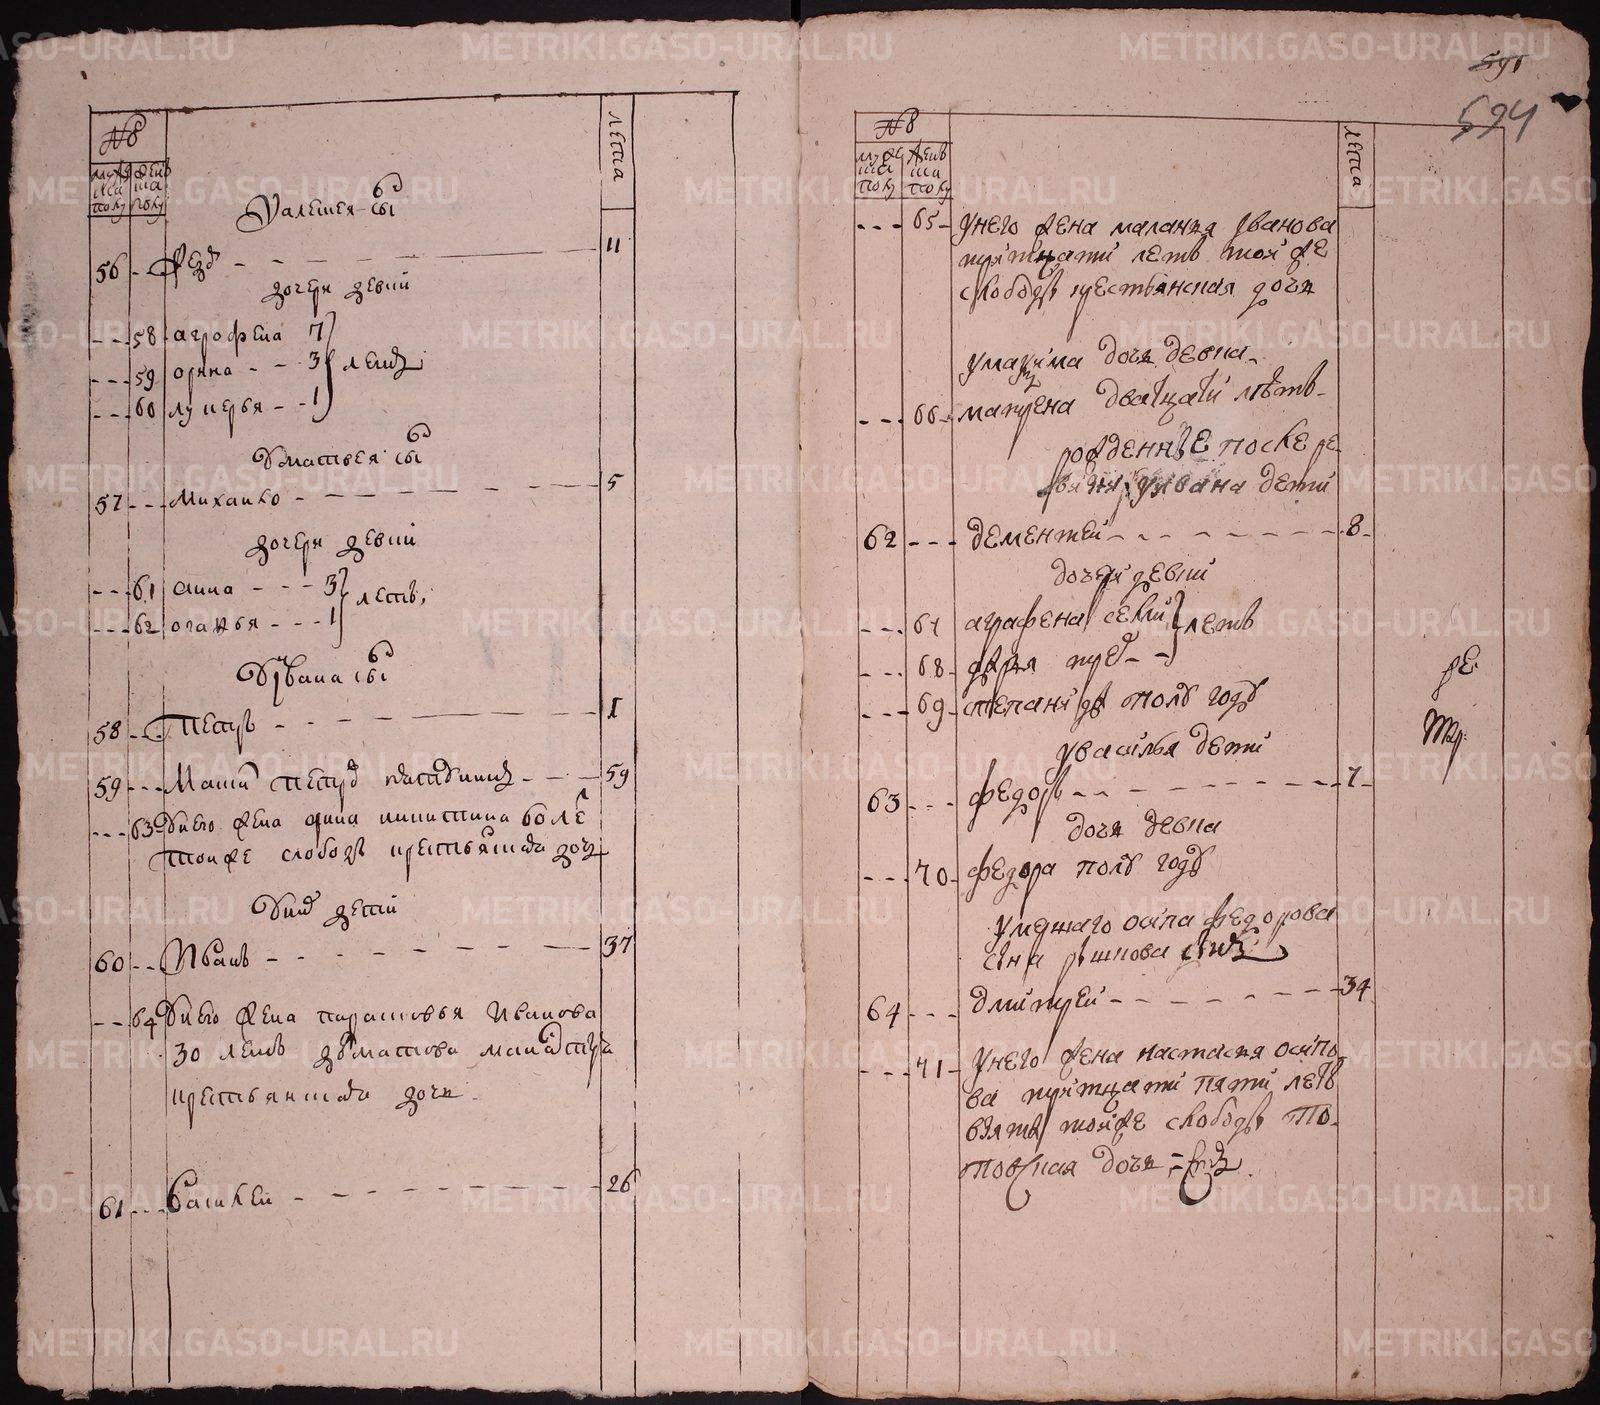 №
мужеска полу
женска полу
лета
У алексея сынъ
56 федоръ 11
дочери девки
58 агрофена 7
59 орина 3 летъ
60 лукерья 1
У матвея сынъ
57 Михайко 5
дочери девки
61 анна 3 летъ
62 огафья 1
У Ивана сынъ
58 Петръ 1
59 59
63 У него жена анна никитина 60 ле
тоя же слободы крестьянская дочь
У них дети
60 Иванъ 37
64 У него жена парасковья Иванова
30 летъ
крестьянская дочь
61 Василей 26
594
№
мужеска полу
женска полу
лета
65 у него жена маланья иванова
тритцати летъ тоя же
слободы крестьянская дочь
у максима дочь девка
66 матрена дватцати летъ
рожденные после ре
визии у ивана дети
62 дементей 8
дочери девки
67 аграфена семи летъ
68 дарья трех
69 степанида полу году
у василья дети
63 федоръ 7
дочь девка
70 федора полу году
осипа федорова
сына
64 дмитрей 34
71 у него жена настасья осипо
ва тритцати пяти летъ
взята тоя же слободы
дочь